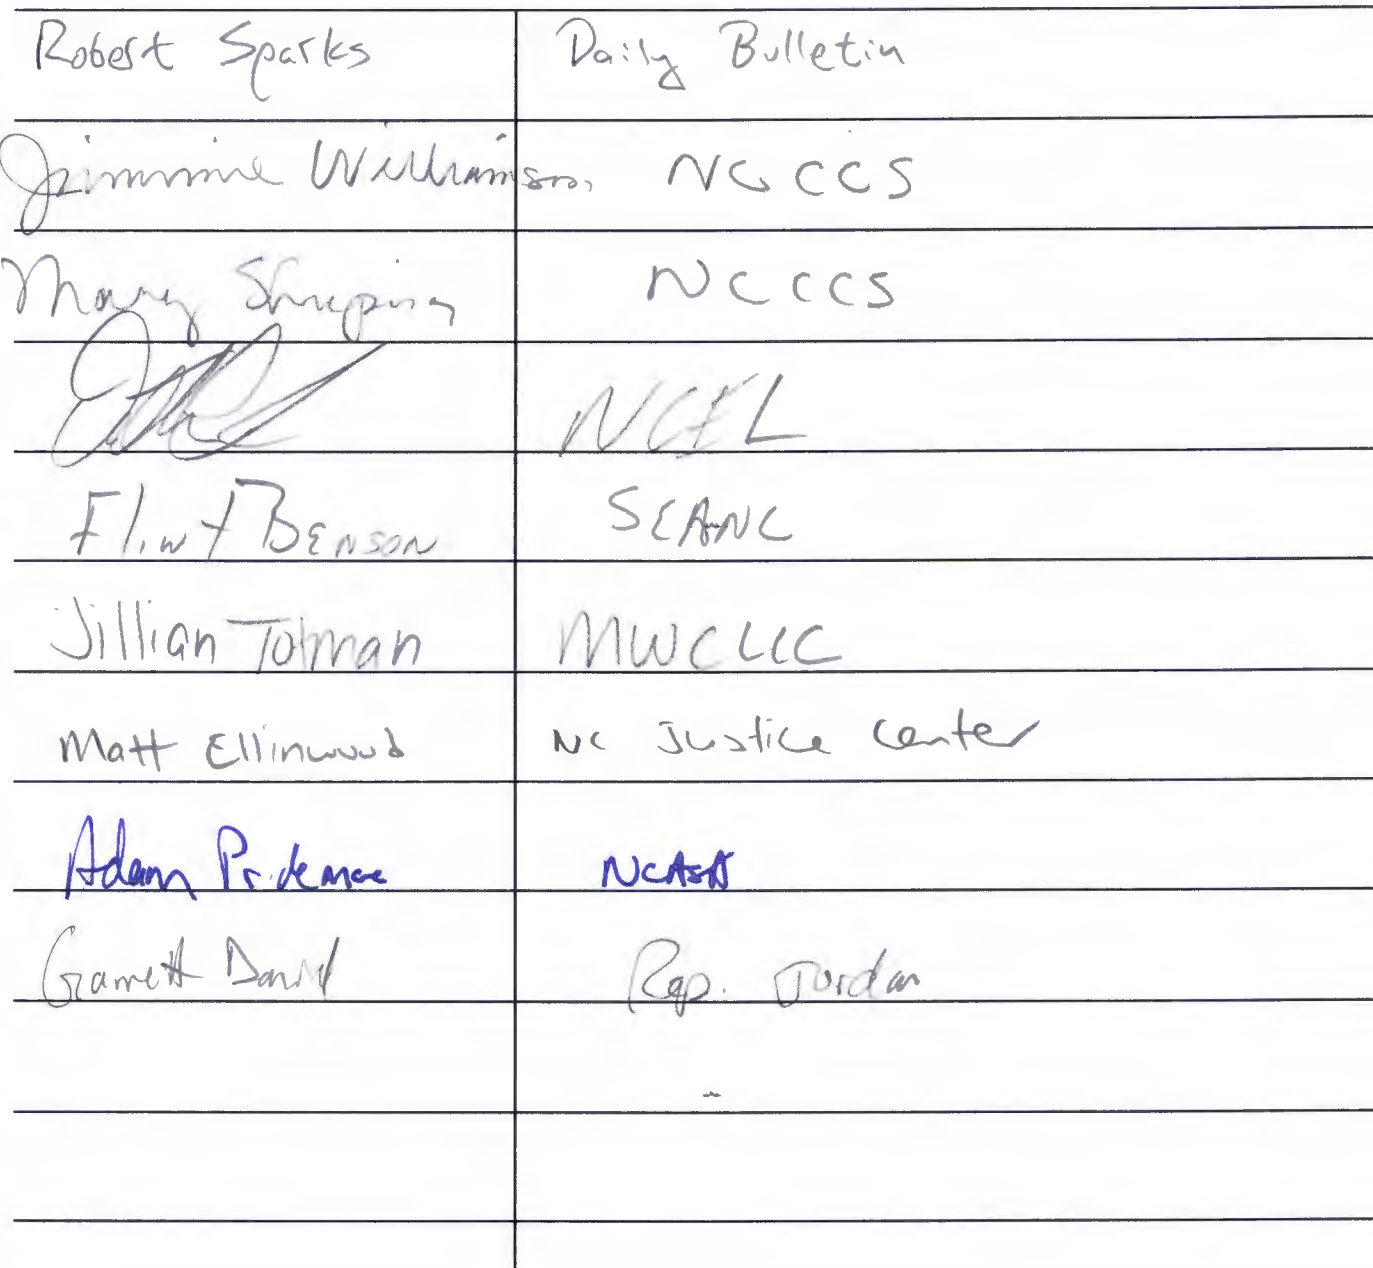 Robert Sparks Daily Bulletin
Jimmie Williamson NCCCS
Mary Shuping NCCCS
NCFL
Flint Benson SEANC
Jillian Totman MWCLLC
Matt Ellinwood NC Justice Center
Adam Pridemore NCASA
Garrett David Rep. Jordan